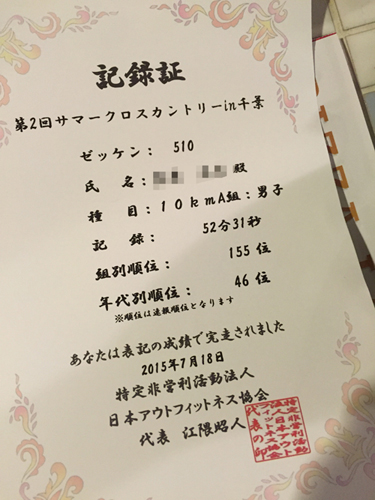 記録証
第2回サマークロスカントリーin千葉
ゼッケン： 510
氏 名： 殿
種 目：１０ｋｍA組：男子
記 録： 52分31秒
組別順位： 155 位
年代別順位： 46 位
※順位は速報順位となります
あなたは表記の成績で完走されました
2015年7月18日
特定非営利活動法人
日本アウトフィットネス協会
代表 江隈昭人